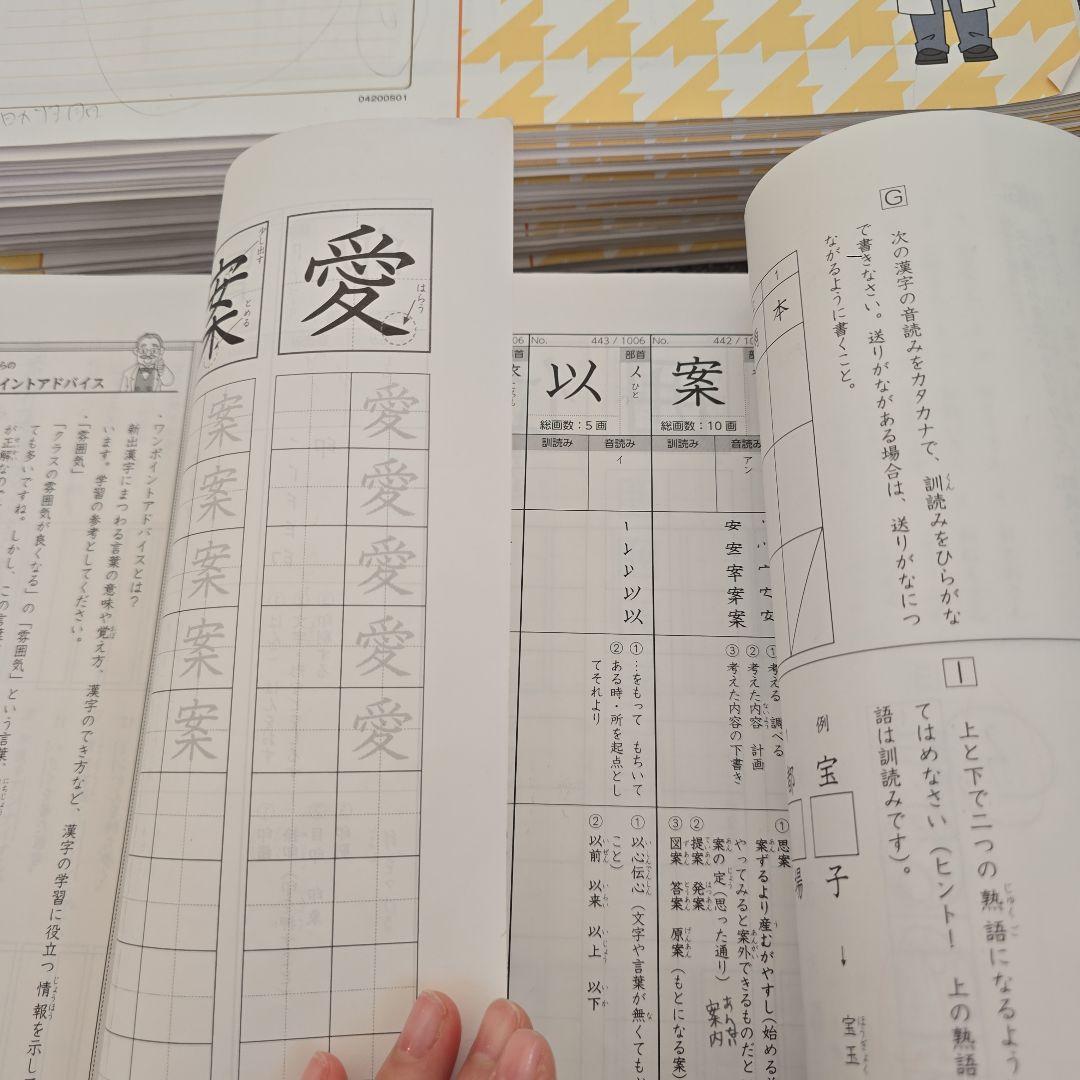 04200801
G
次の漢字の音読みをカタカナで、訓読みをひらがな
くん
で書きなさい。送りがながある場合は、送りがなにつ
ながるように書くこと。
1
本
I
上と下で二つの熟語になるよう
じゅくご
てはめなさい（ヒント！　上の熟語
語は訓読みです）。
例
宝
子
↓
宝玉
ほうぎょく
場
No.
442 / 10
案
総画数：10 画
音読み
訓読み
アン
①考える　調べる
②考えた内容　計画
ないよう
③考えた内容の下書き
①思案
しあん
案ずるより産むがやすし（始める
あん
う
やってみると案外できるものだと
あんがい
案の定（思った通り）
あん
じょう
案内
あんない
②提案　発案
ていあん
はつあん
③図案　答案　原案（もとになる案）
ずあん
とうあん
げんあん
No.
443 / 1006
部首
人
ひと
以
総画数：5 画
音読み
訓読み
イ
①…をもって　もちいて
②ある時・所を起点とし
てそれより
①以心伝心（文字や言葉が無くても
いしんでんしん
な
こと）
②以前　以来　以上　以下
いぜん
いらい
いじょう
いか
06
部首
愛
はらう
愛
愛
愛
愛
愛
案
少し出す
とめる
案
案
案
案
案
らの
イントアドバイス
・ワンポイントアドバイスとは？
新出漢字にまつわる言葉の意味や覚え方、漢字のでき方など、漢字の学習に役立つ情報を示して
じょうほう
います。学習の参考としてください。
・「雰囲気」
「クラスの雰囲気が良くなる」の「雰囲気」という言葉、
ても多いですね。しかし、この言葉
が正解なので